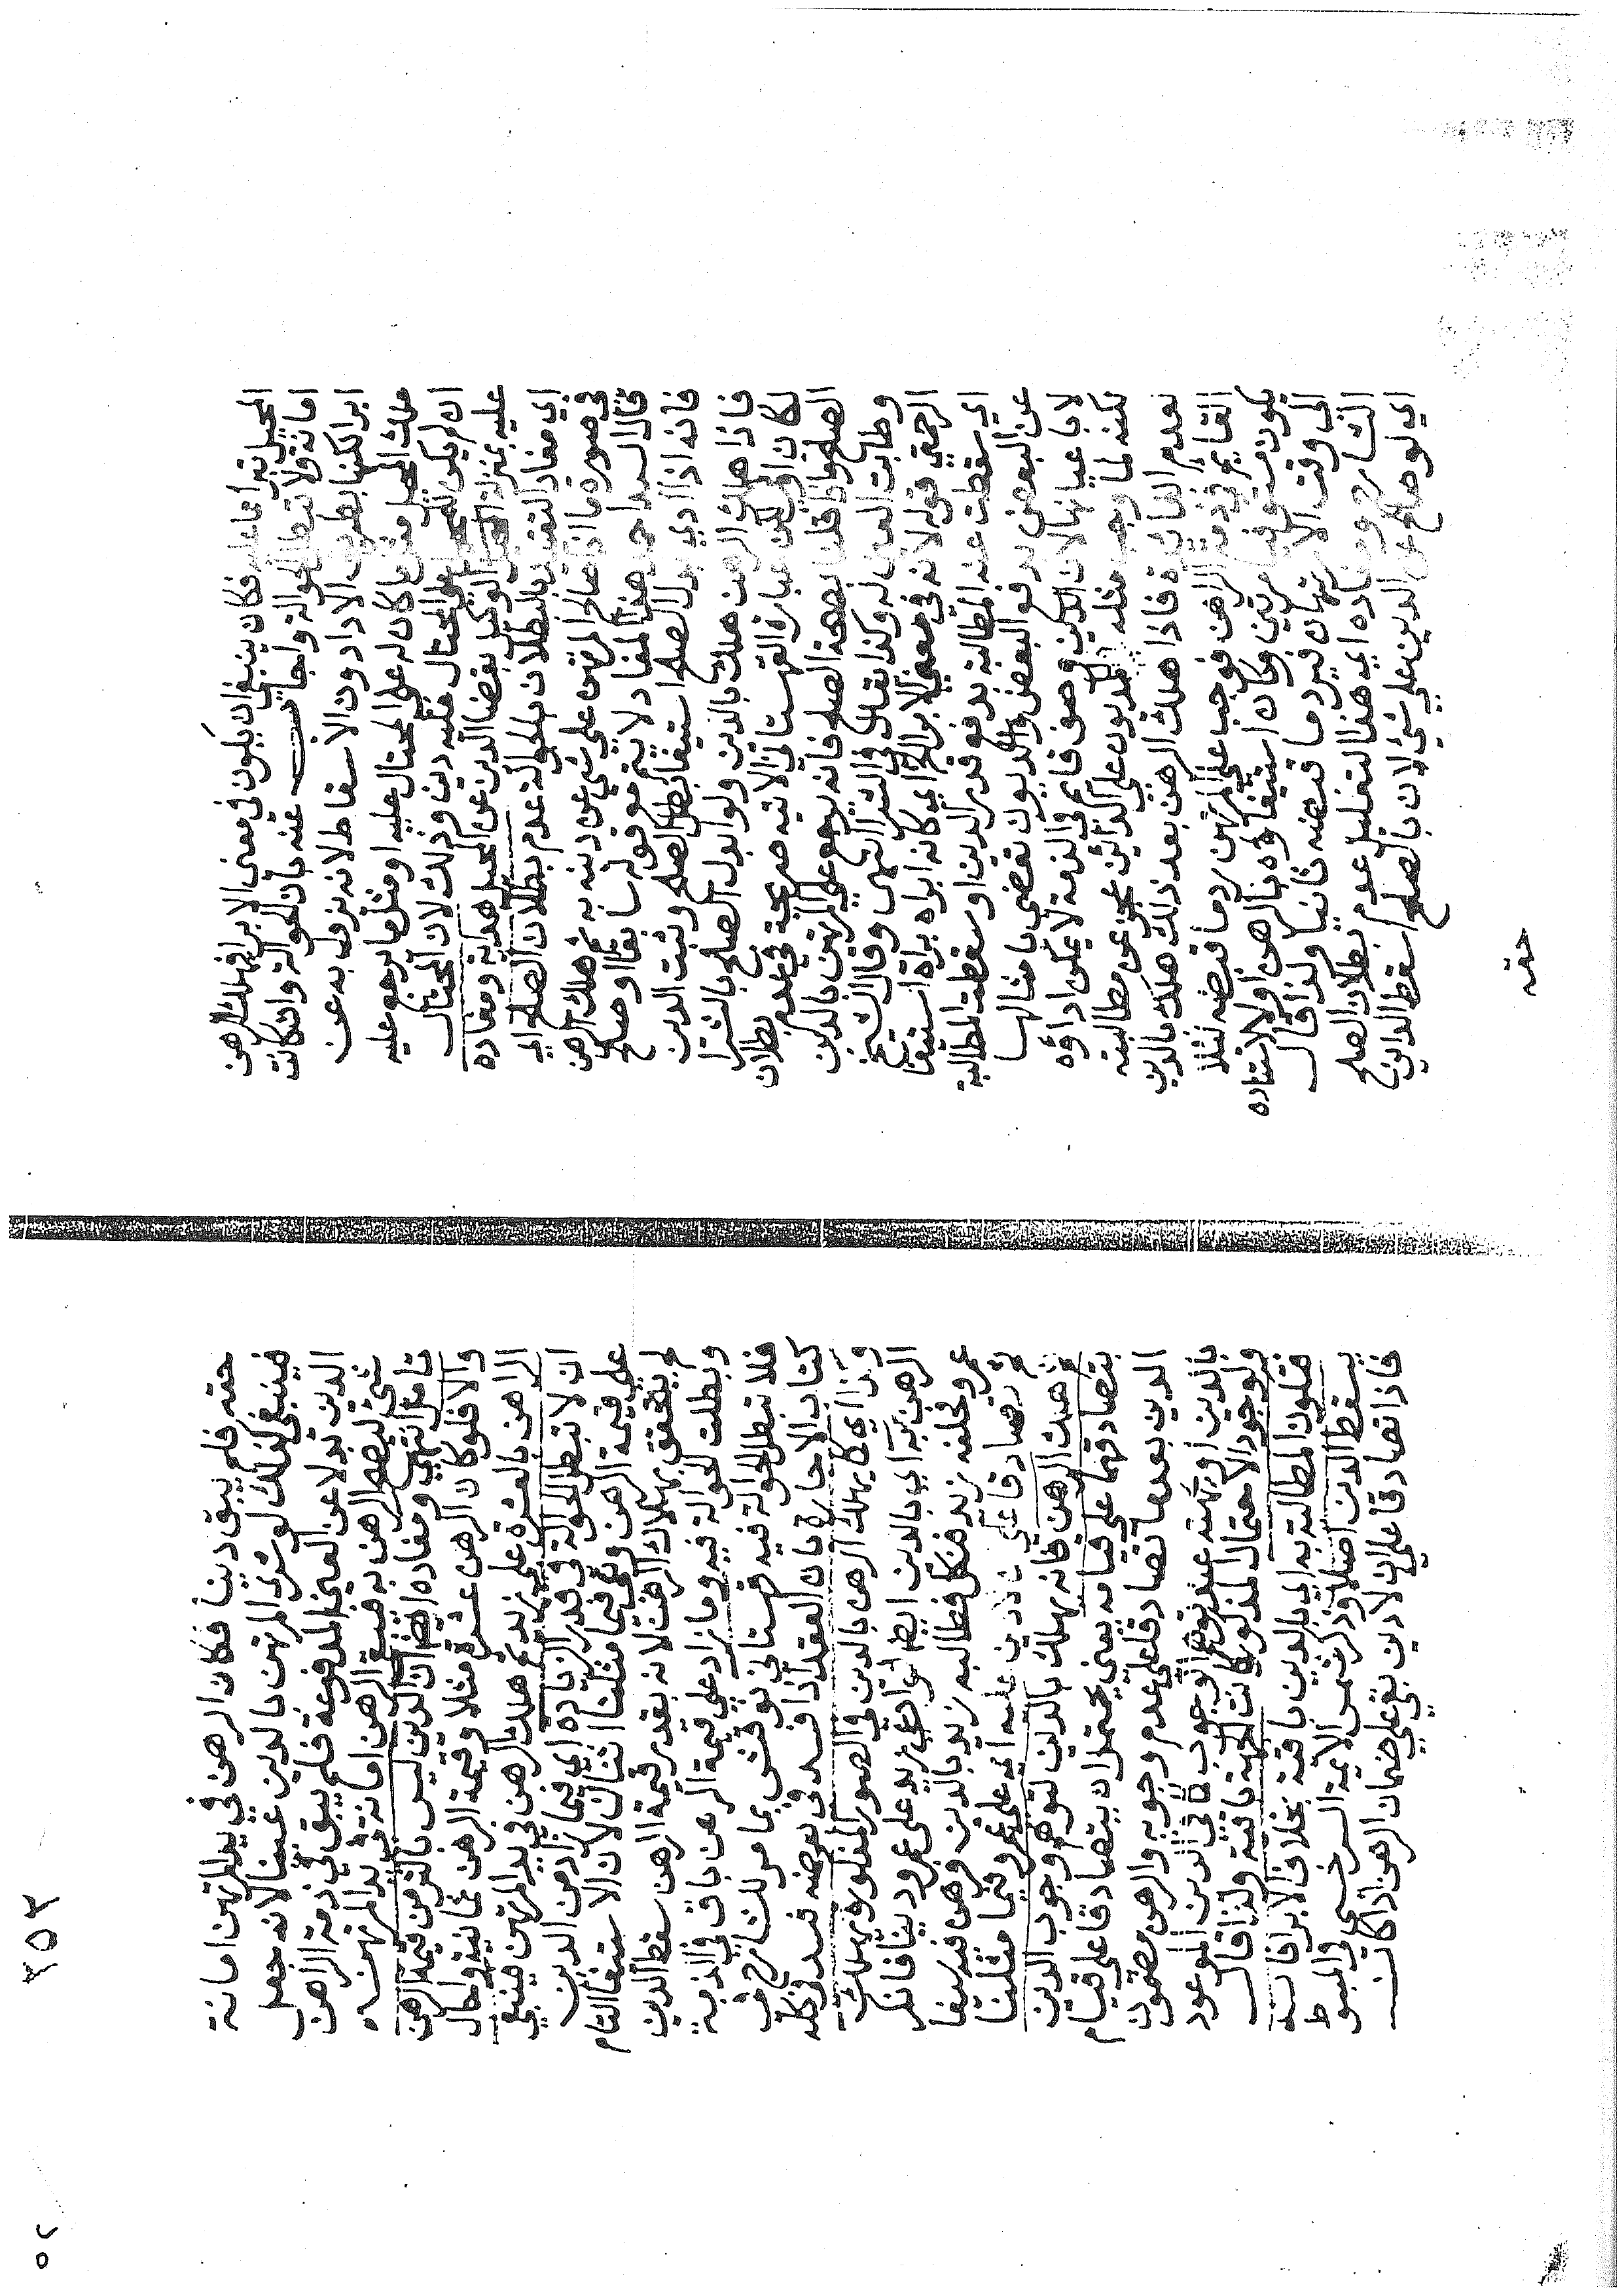 المحيل تبرأ ذمته فكان ينبغي ان يكون في معنى الابرا فيهلك الرهن
امانة ولا تبطل الحوالة واجاب عنه بان الحوالة وان كانت
ابرا لكنها بطريق الادا دون الاسقاط لانه يزول به عن
ملك المحيل مثل ما كان له على المحتال عليه او مثل ما يرجع عليه
ان لم يكن للمحيل على المحتال عليه دين وذلك لان المحتال
عليه بمنزلة الوكيل بقضا الدين عن المحيل هداية ومفاده
اي مفاد التقييد بالبطلان بالحوالة عدم بطلان الصلح اي
في صورة ما اذا صالح المرتهن على شي عن دينه ثم هلك الرهن
قال هذا المفاد لا يتم مع قوله سابقا او صالح
فانه اذا ادي بدل الصلح استيفا بطل الصلح وثبت الدين
فاذا هلك الرهن هلك بالدين ولو ابدل الصلح بالشرا
لكان اولى لكن عبارة القهستاني الاتية صريحة في عدم بطلان
الصلح واذا قلنا بصحة الصلح فانه يرجع على المرتهن بالدين
وطابت العين له وكذا يقال في الشرا انتهى وقال الشيخ
الرحمتي قوله لانه في معنى الابرا الخ اي كانه ابراه براة استيفا
اي سقطت عنه المطالبة بدفع قدر الدين او سقطت المطالبة
عن البعض بدفع البعض والديون تقضى بامثالها
لا باعيانها لان الدين وصف قايم في الذمة لا يمكن اداؤه
لكنه لما وجب مثله للمديون على الداين عجز عن مطالبته
لعدم الفايدة فاذا هلك الرهن بعد ذلك هلك بالدين
القايم في ذمة الراهن فوجب على المرتهن رد ما قبضه لئلا
يكون مستوفيا مرتين وكان استيفاؤه بالرهن اولا لاستناده
الى وقت الارتهان فيرد ما قبضه ثانيا ولذا قال
الشارح ومفاده اي هذا التعليل عدم بطلان الصلح
اي لو صالح عن الدين على شي لان بالصلح سقط الدين
حقه
حقه فلم يبق دينا فكان الرهن في يد المرتهن امانة
فينبغي كذلك لو شرى المرتهن بالدين عينا لانه جعل
الدين بدلا عن العين المدفوعة فلم يبق في ذمة الراهن
شي ليصح الرهن به فيبقى الرهن امانة في يد المرتهن
تامل انتهى ومفاده ايضا ان الدين ليس باكثر من قيمة الرهن
والا فلو كان الرهن عشرة مثلا وقيمة الرهن ثمانية واحال
الراهن بالعشرة على زيد ثم هلك الرهن في يد المرتهن فينبغي
ان لا تبطل الحوالة في قدر الزيادة اي فيما زاد من الدين
على قيمة الرهن وهي فيما مثلنا اثنان لان الاستيفا التام
لم يتحقق بهلاك الرهن لانه بقدر قيمة الرهن سقط الدين
وبطلت الحوالة فيه وما زاد على قيمة الرهن باق في الذمة
فلا تبطل الحوالة فيه قهستاني نوقش بما مر للشارح في
كتاب الاجارة بان العقد اذا فسد في بعضه فسد في كله
وكذا اي كما يهلك الرهن بالدين في الصور المذكورة يهلك
الرهن به اي بالدين ايضا لو ادعى زيد على عمرو دينا فانكر
عمرو فحلفه زيد فنكل فطالبه زيد بالدين فرهن
ثم تصادقا على ان لا دين عليه اي على عمرو فيما مثلنا
ثم هلك الرهن فانه يهلك بالدين لتوهم وجوب الدين
بتصادقهما على قيامه يعني يحتمل ان يتصادقا على قيام
الدين بعدما تصادقا على عدم وجوبه والرهن مضمون
بالدين او بجهته عند توهم الوجوب كما في الدين الموعود
ولوجود الاحتمال المذكور كانت الجهة باقية ولذا قال
فتكون المطالبة به اي بالدين باقية بخلاف الابرا فانه
يسقط الدين اصلا وذكر شمس الايمة السرخسي في المبسوط
فاذا تصادقا على ان لا دين بقي على ضمان الرهن اذا كان
٣٥٢